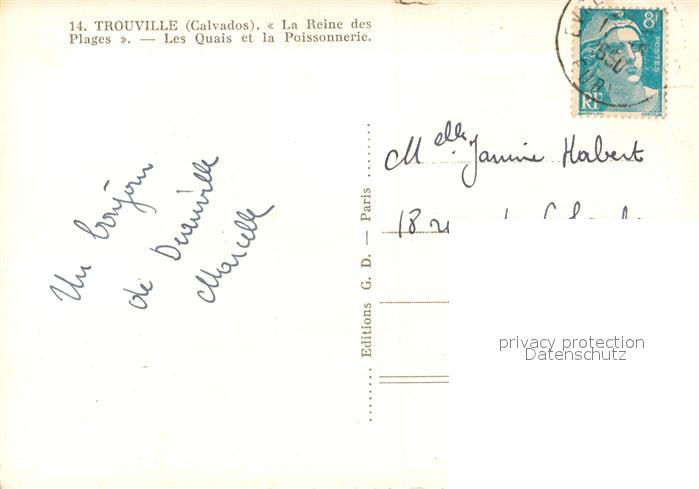 14. TROUVILLE (Calvados). « La Reine des
Plages ». — Les Quais et la Poissonnerie.
8F
POSTES
RF
Un bonjour
de Deauville
Marcelle
Editions G. D. — Paris
Melle Janine Habert
18 rue
privacy protection
Datenschutz